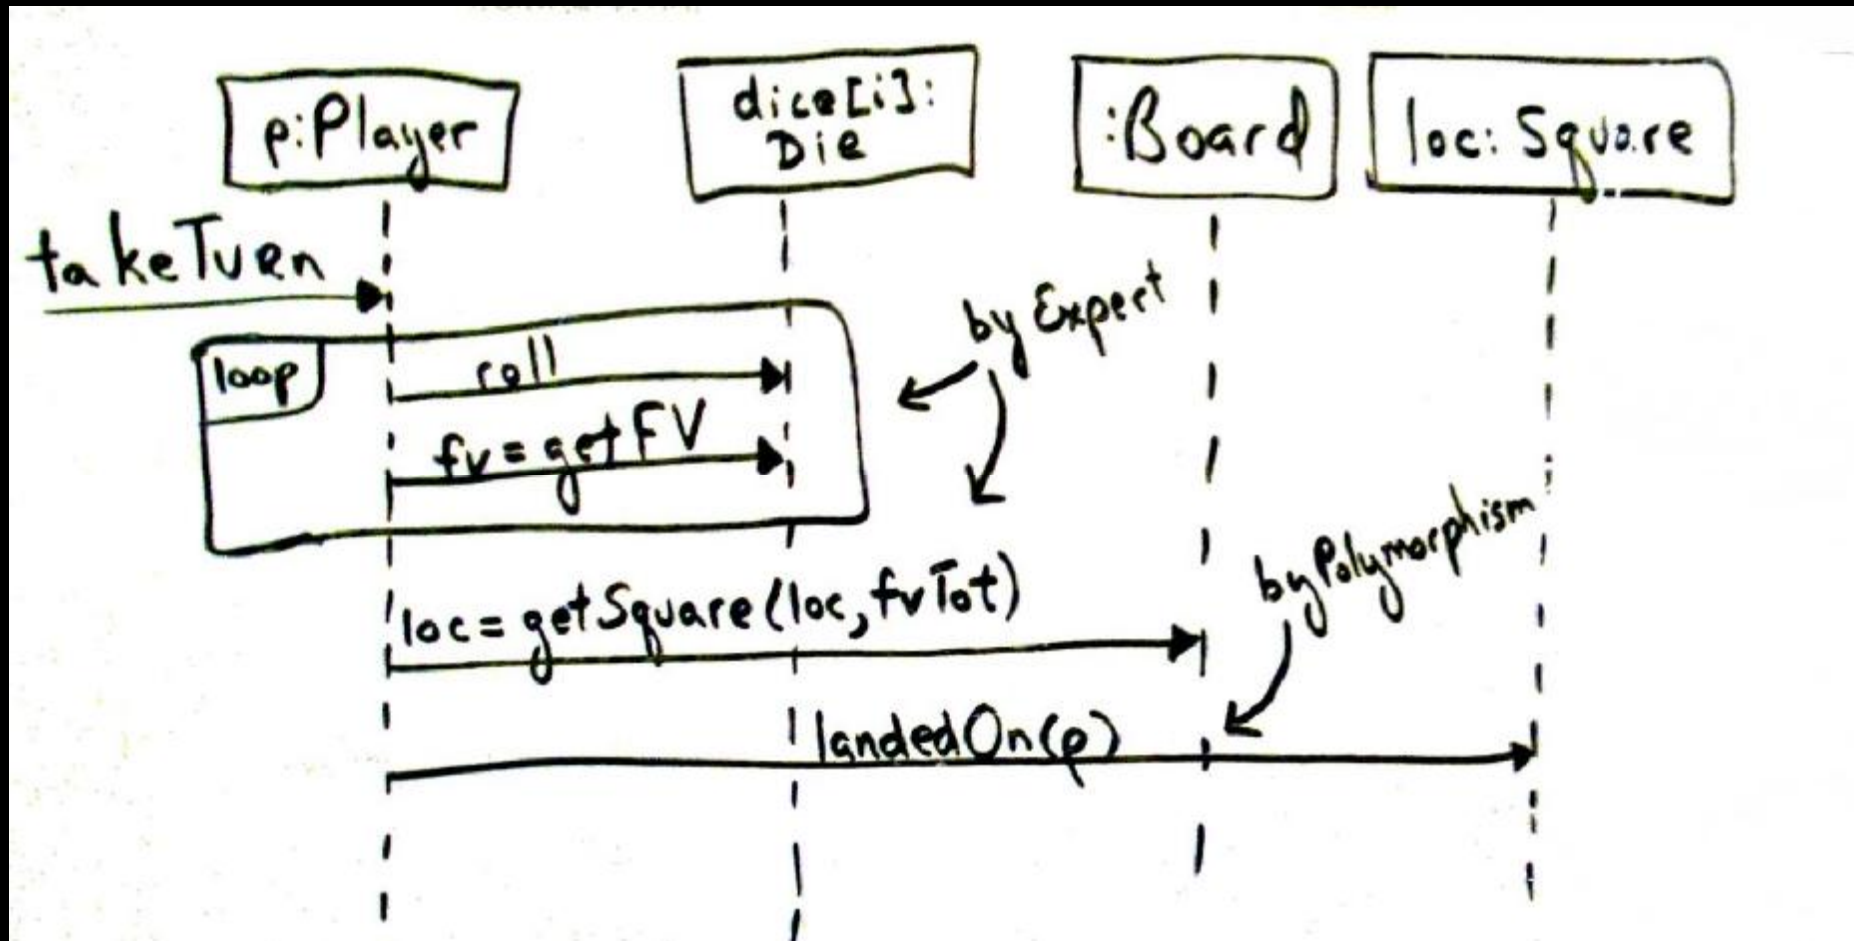 p:Player
dice[i]:
Die
:Board
loc: Square
takeTurn
by Expert
loop
roll
fv = getFV
by Polymorphism
loc = getSquare(loc, fvTot)
landedOn(p)